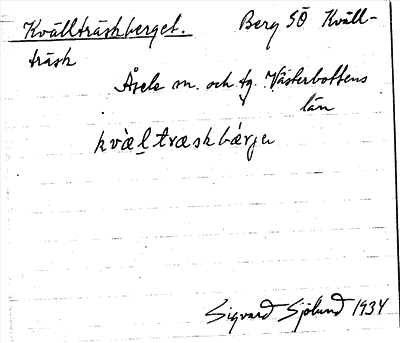 Kvällträskberget. Berg SÖ Kväll-
träsk
Åsele sn. och tg. Västerbottens
län
kvæ̀l̲træskbǽrjə
Sigvard Sjölund 1934